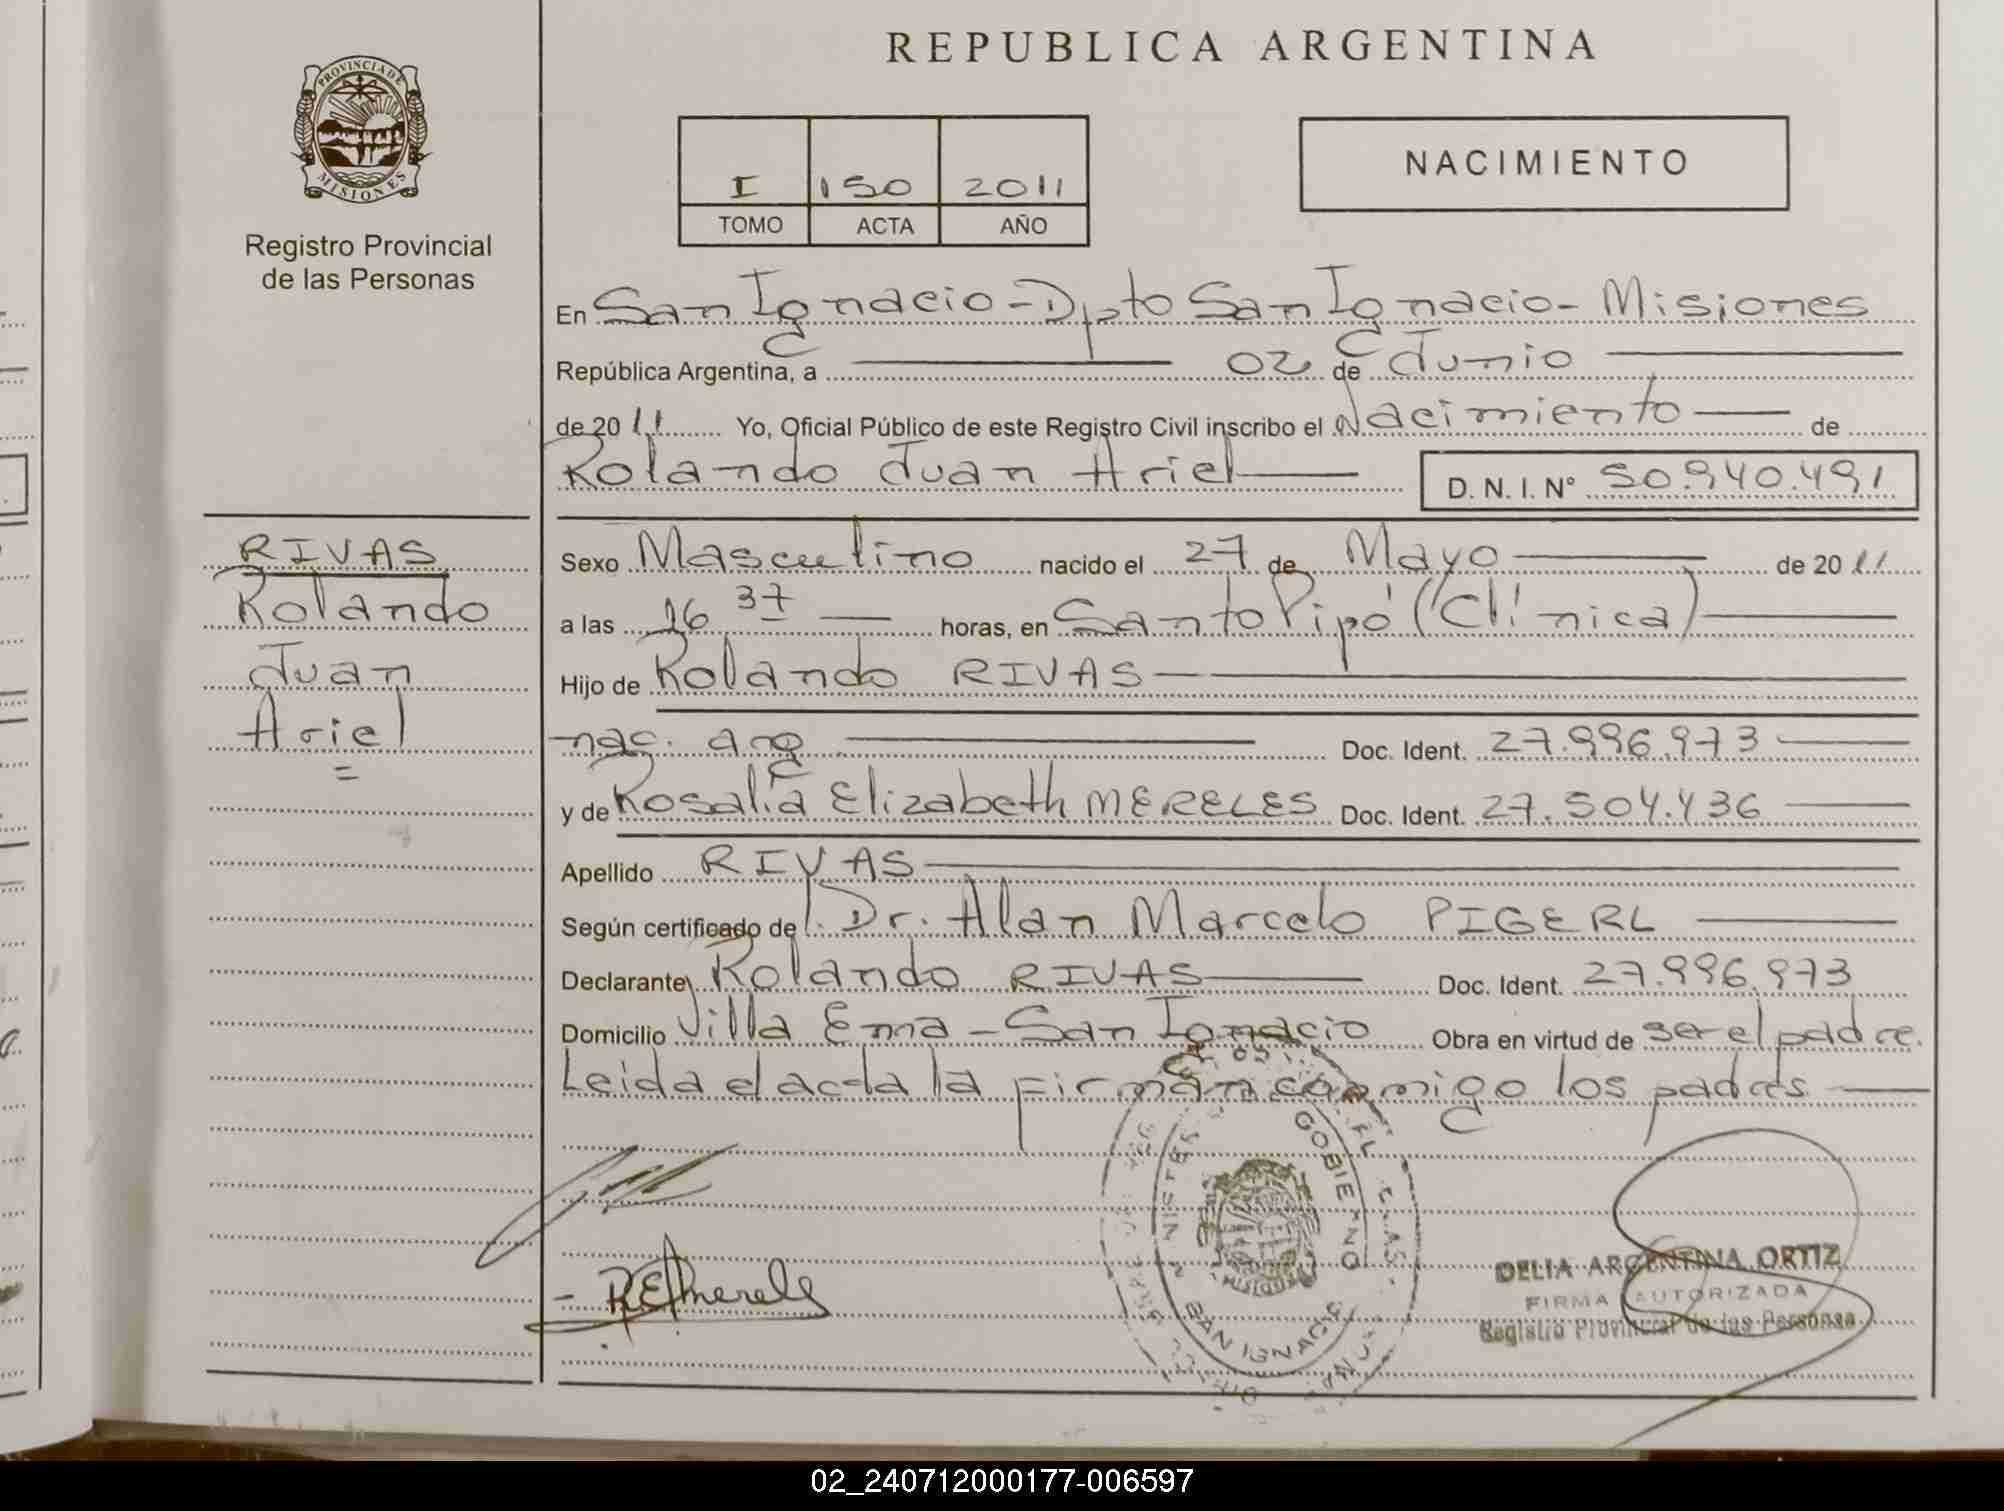 REPUBLICA ARGENTINA
PROVINCIA DE
MISIONES
Registro Provincial
de las Personas
I 150 2011
TOMO ACTA AÑO
NACIMIENTO
En San Ignacio - Dpto San Ignacio - Misiones
República Argentina, a 02 de Junio
de 2011 Yo, Oficial Público de este Registro Civil inscribo el Nacimiento de
Rolando Juan Ariel D. N. I. Nº 50.940.491
RIVAS
Rolando
Juan
Ariel
=
Sexo Masculino nacido el 27 de Mayo de 2011
a las 16 37 horas, en Santo Pipó (Clínica)
Hijo de Rolando RIVAS
nac. arg Doc. Ident. 27.996.973
y de Rosalía Elizabeth MERELES Doc. Ident. 27.504.436
Apellido RIVAS
Según certificado de Dr. Alan Marcelo PIGERL
Declarante Rolando RIVAS Doc. Ident. 27.996.973
Domicilio Villa Ema - San Ignacio Obra en virtud de ser el padre
Leida el acta la firman conmigo los padres
GOBIERNO
MISIONES
SAN IGNACIO
R E Mereles
DELIA ARGENTINA ORTIZ
FIRMA AUTORIZADA
Registro Provincial de las Personas
02_240712000177-006597